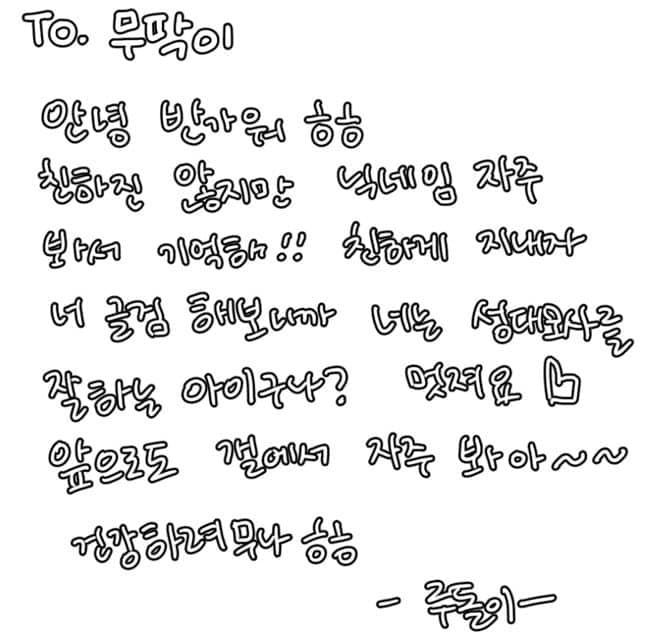 To. 무딱이
안녕 반가워 흐흐
친하진 않지만 닉네임 자주
봐서 기억해!! 친하게 지내자
너 글검 해보니까 너는 성대모사를
잘하는 아이구나? 멋져요 👍
앞으로도 갤에서 자주 봐아~~
건강하려무나 흐흐
- 주돌이 -